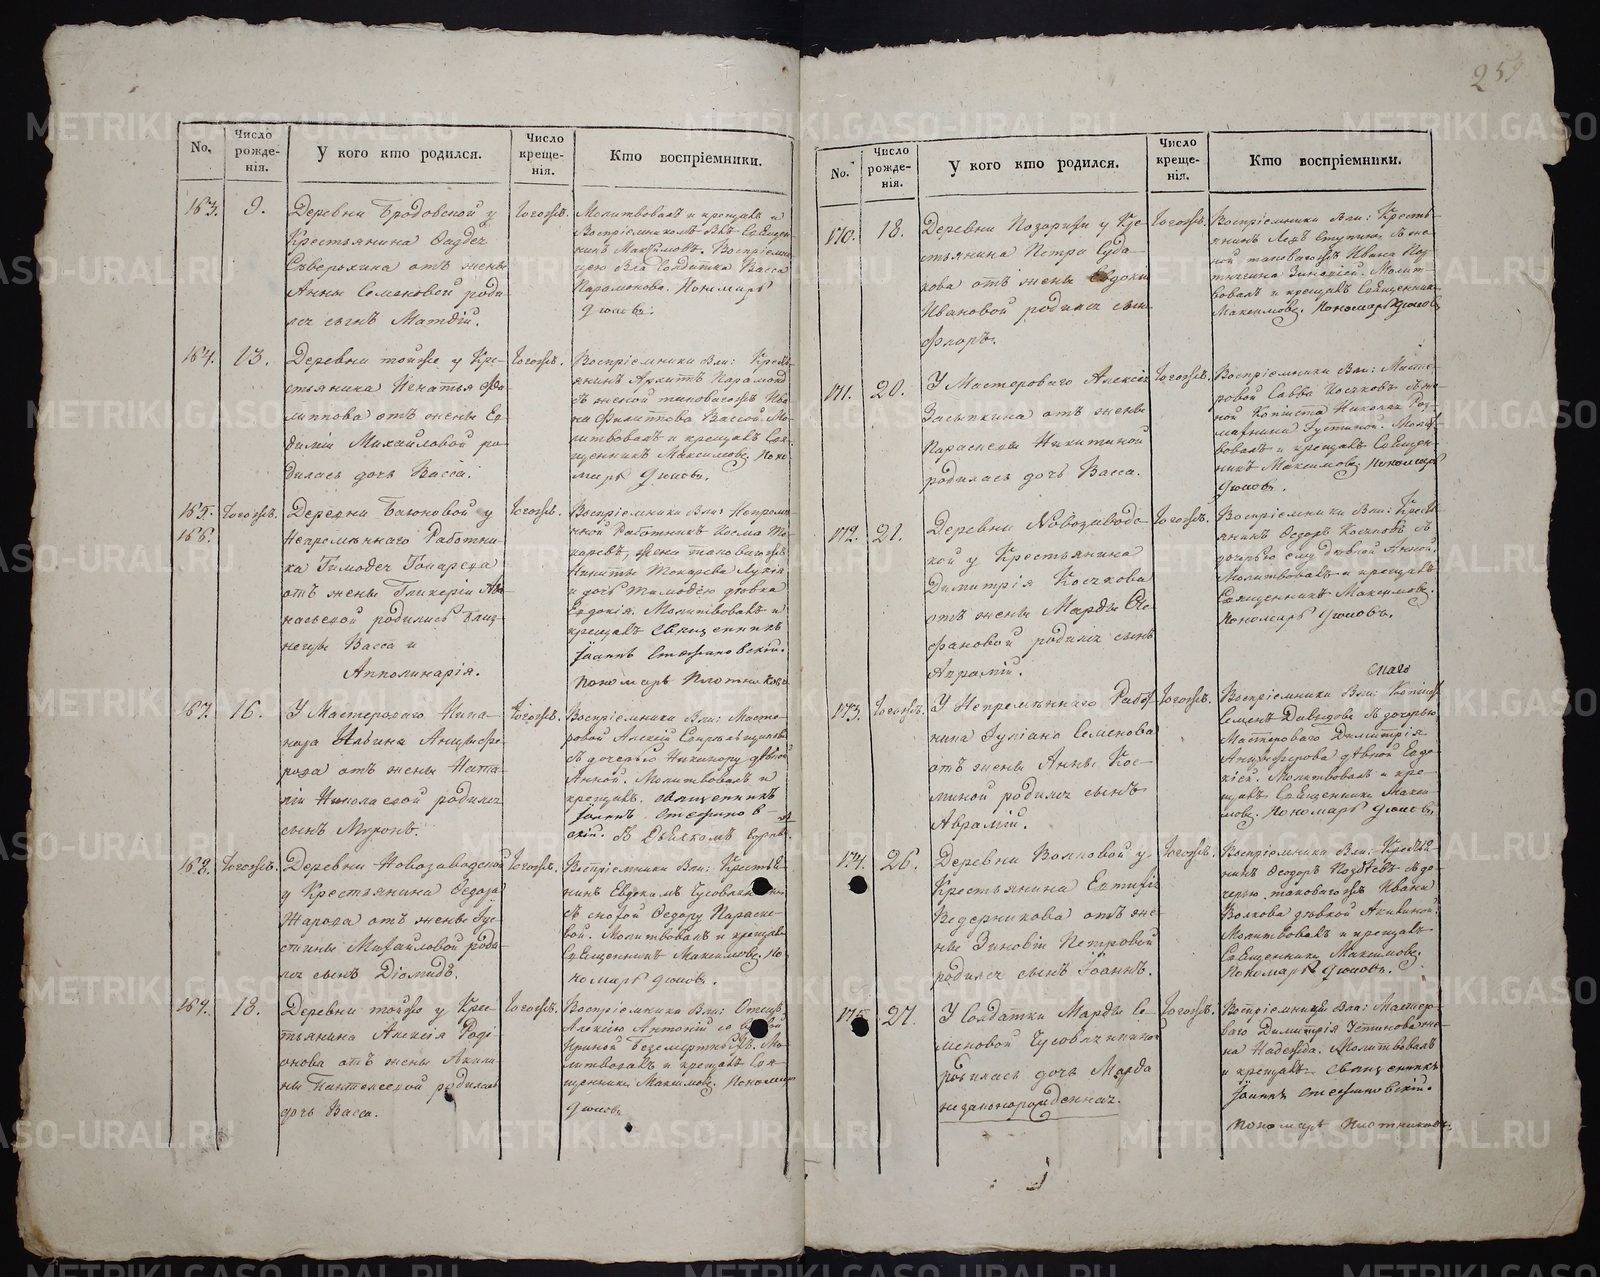 259
No.
Число рожде-нія.
У кого кто родился.
Число креще-нія.
Кто воспріемники.
163.
9.
Деревни Бродовской у
Крестьянина Фаддея
отъ жены
Анны Семеновой роди
лся сынъ Матѳій.
тогожъ.
Молитвовалъ и крещалъ и
воспріемникомъ былъ Священ
никъ Максимовъ. Воспріемни
цею была Васса
Парамонова. Пономарь
164.
13.
Деревни тойже у Кре-
стьянина Игнатья Фи
липпова отъ жены Ев
Михайловой ро
дилась дочь Васса.
тогожъ.
Воспріемники были: Крестъ
янинъ Архипъ Парамонов
съ женой таковагожъ Ива
на Филиппова Вассой. Мо
литвовалъ и крещалъ Свя
щенникъ Максимовъ. Поно
марь
165.
166.
тогожъ.
Деревни Баюновой у
Непремѣннаго Работни
ка Тимофея Токарева
отъ жены Гликеріи Афа
насьевой родились близ
нецы Васса и
Апполинарія.
тогожъ.
Воспріемники были: Непремѣ
нной Работникъ Косма То
каревъ, жена таковагожъ
Никиты Токарева Лукія
и дочь Тимофею дѣвка
Евдокія. Молитвовалъ и
крещалъ Священникъ
Іоаннъ Стефановскій.
Пономарь Плотниковъ
167.
16.
У Мастероваго Ника-
нора Анцыфе
рова отъ жены Ната-
ліи Николаевой родился
сынъ Миронъ.
тогожъ.
Воспріемники были: Масте-
ровой Алексій
съ дочерью Никанору дѣвкой
Анной. Молитвовалъ и
крещалъ Священникъ
Іоаннъ Стефанов
скій.
168.
тогожъ.
Деревни Новозаводской
у Крестьянина Федора
Жарова отъ жены Іус-
тины Михайловой роди-
лся сынъ Діомидъ.
тогожъ.
Воспріемники были: Крестья-
нинъ Евдокимъ
съ снохой Федору Параске-
вой. Молитвовалъ и крещалъ
Священникъ Максимовъ. По-
номарь
169.
18.
Деревни тойже у Крес-
тьянина Алексія Роді-
онова отъ жены Акили-
ны Пантелеевой родилась
дочь Васса.
тогожъ.
Воспріемники были: Отецъ
Алексію Антоній со
Ириной Безсмертныхъ. Мо-
литвовалъ и крещалъ Свя-
щенникъ Максимовъ. Пономарь
No.
Число рожде-нія.
У кого кто родился.
Число креще-нія.
Кто воспріемники.
170.
18.
Деревни Позарихи у Кре-
стьянина Петра Суда-
кова отъ жены Евдокіи
Ивановой родился сынъ
Флоръ.
тогожъ.
Воспріемники были: Кресть-
янинъ Левъ Ступинъ съ же-
ной таковагожъ Ивана
Зиновіей. Молит-
вовалъ и крещалъ Священникъ
Максимовъ. Пономарь
171.
20.
У Мастероваго Алексія
Засыпкина отъ жены
Параскевы Никитиной
родилась дочь Васса.
тогожъ.
Воспріемники были: Масте-
ровой Савва Косаковъ съ же-
ной Копіиста Николая
Іустиной. Молит
вовалъ и крещалъ Священ-
никъ Максимовъ. Пономарь
172.
21.
Деревни Новозаводс-
кой у Крестьянина
Димитрія Косякова
отъ жены Марѳы Сте-
фановой родился сынъ
тогожъ.
Воспріемники были: Кресть
янинъ Федоръ Косяковъ съ
дочерью ему дѣвкой Анной.
Молитвовалъ и крещалъ
Священникъ Максимовъ.
Пономарь
173.
тогожъ.
У Непремѣннаго Работ
ника Іуліана Семенова
отъ жены Анны Кос-
миной родился сынъ
Аврамій.
тогожъ.
Воспріемники были: Копіистъ
Семенъ Давыдовъ съ дочерью
Мастероваго Димитрія
Анцыферова дѣвкой Евдо-
кіей. Молитвовалъ и кре-
щалъ Священникъ Макси-
мовъ. Пономарь
174.
26.
Деревни Волковой у
Крестьянина Евтихія
Ведерникова отъ же-
ны Зиновіи Петровой
родился сынъ Іоаннъ.
тогожъ.
Воспріемники были: Крестья-
нинъ Феодоръ Поздѣевъ съ до-
черью таковагожъ Ивана
Волкова дѣвкой Акилиной.
Молитвовалъ и крещалъ
Священникъ Максимовъ.
Пономарь
175.
27.
У Солдатки Марѳы Се-
меновой
родилась дочь Марѳа
незаконорожденная.
тогожъ.
Воспріемницей была: Мастеро-
ваго Димитрія Устинова же-
на Надежда. Молитвовалъ
и крещалъ Священникъ
Іоаннъ Стефановскій.
Пономарь Плотниковъ.
METRIKI.GASO-URAL.RU